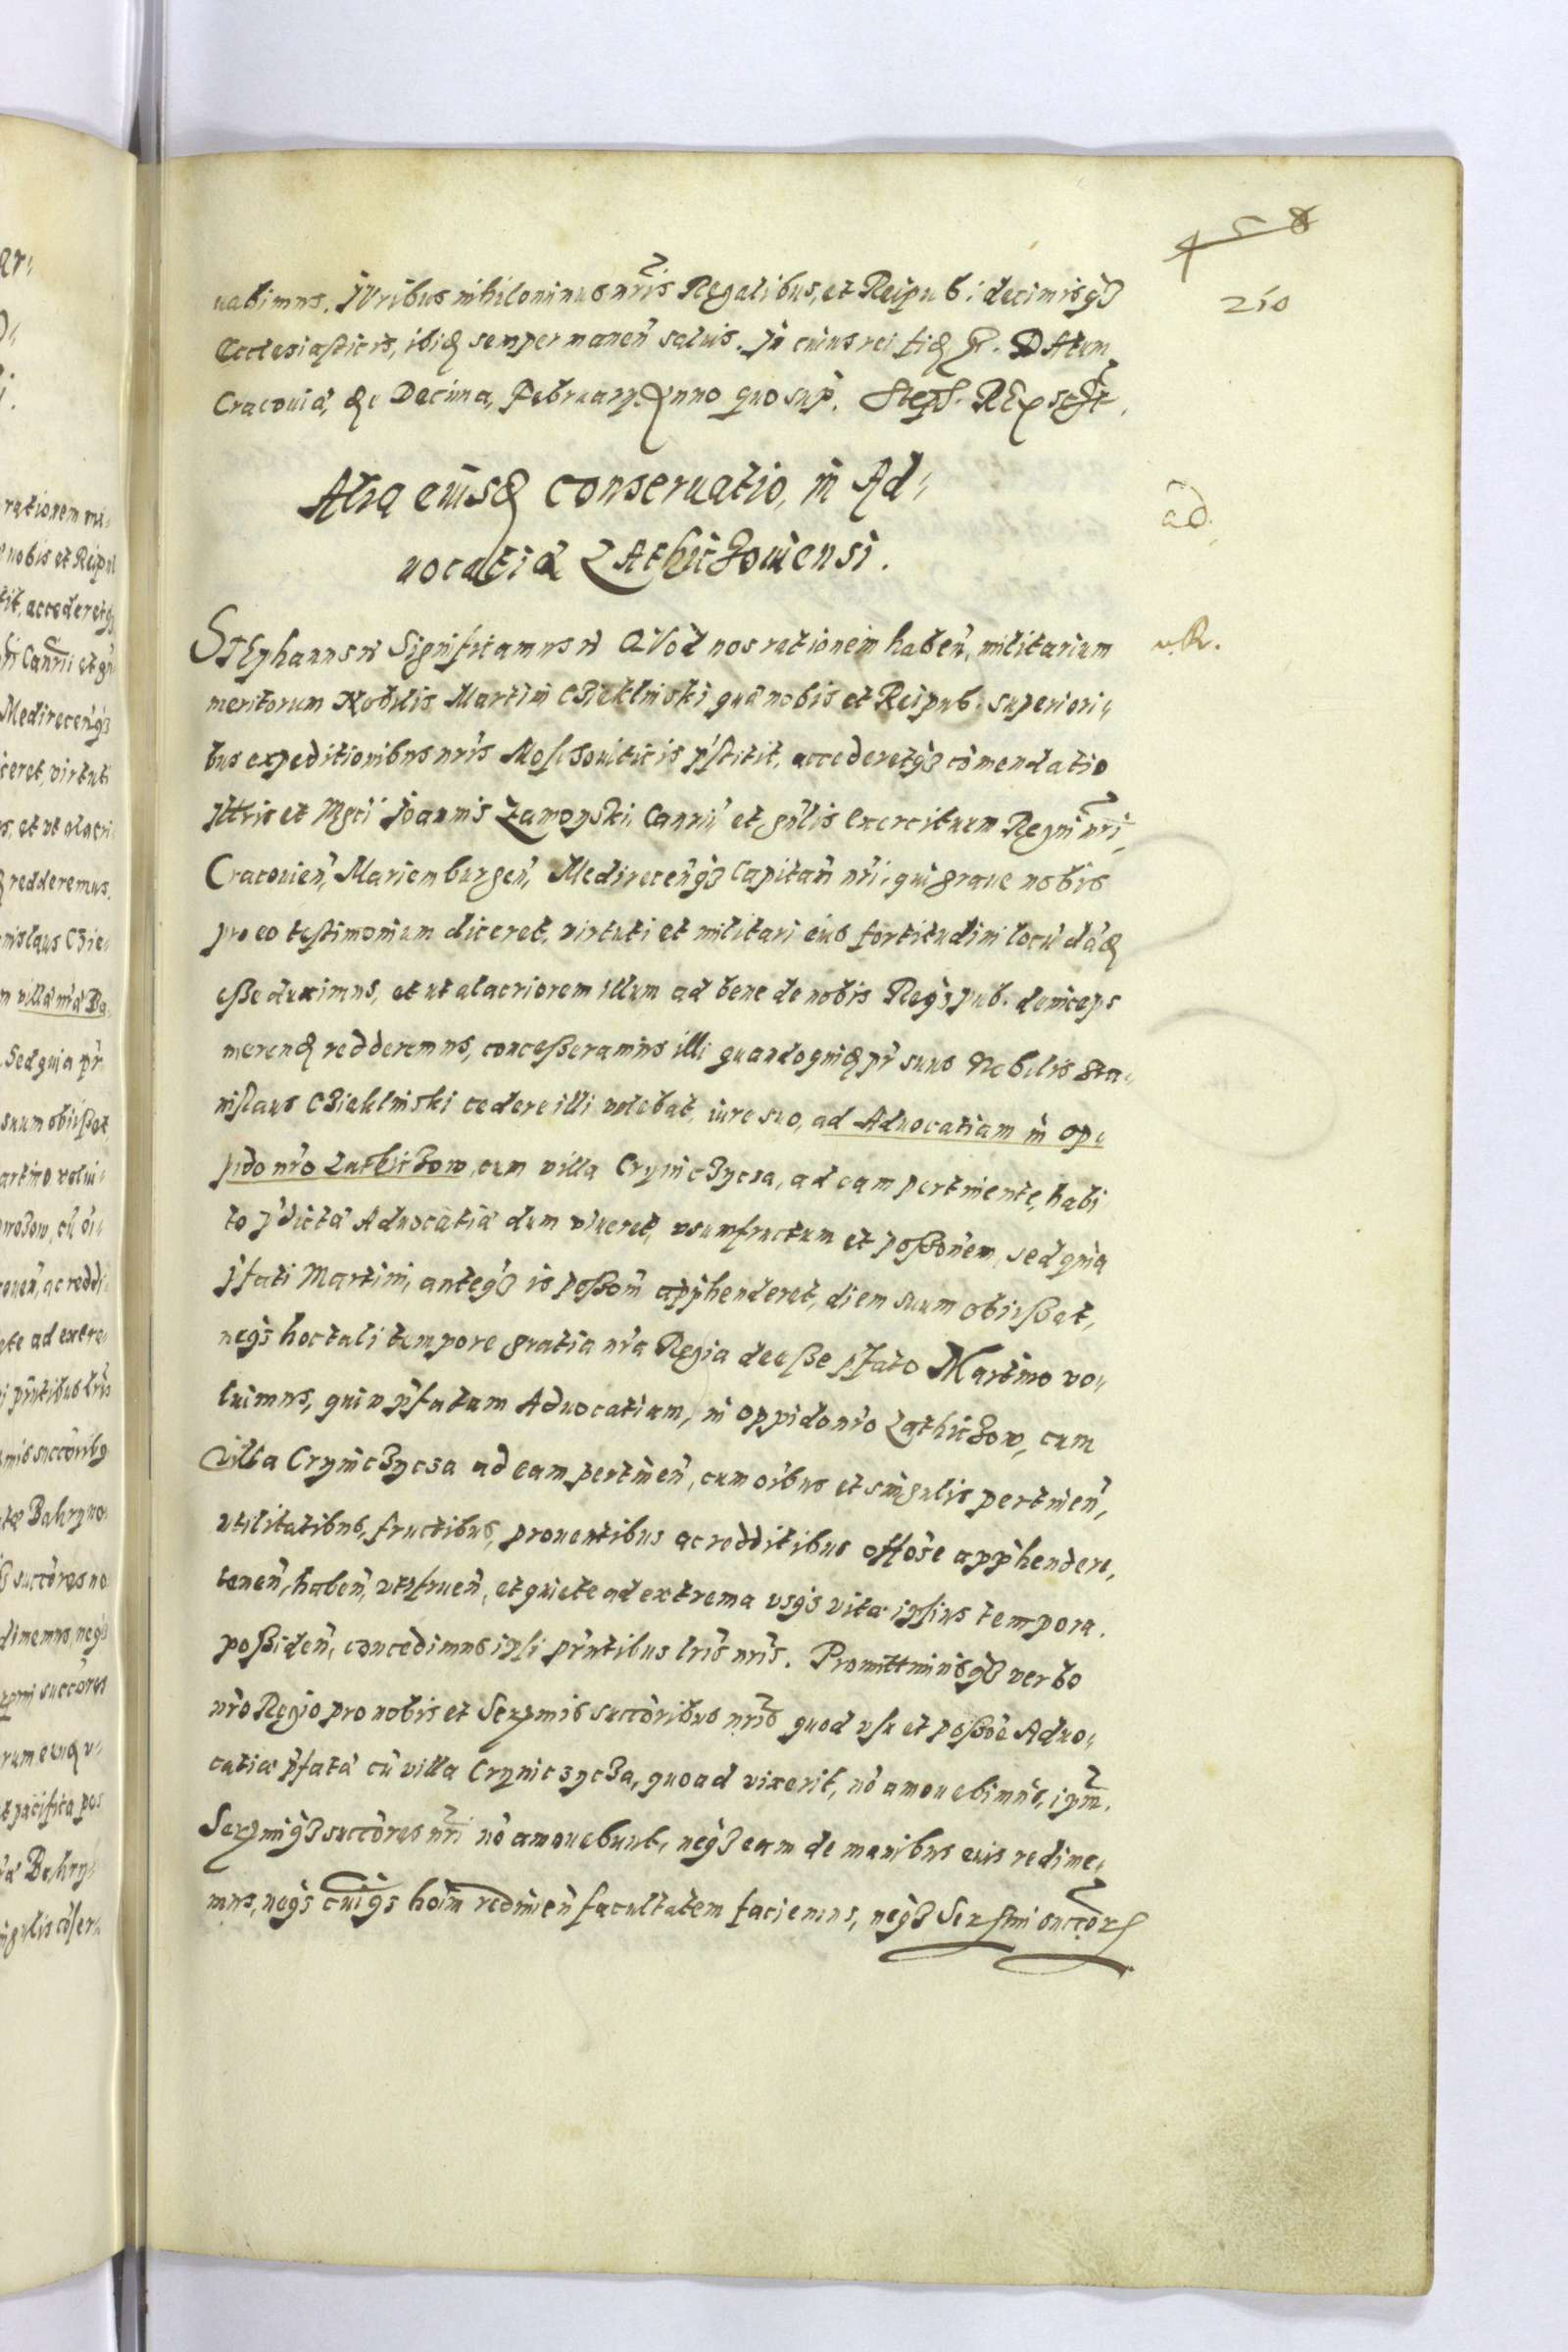 458
210
uabimus. JUribus nihilominus nris Regalibus, et Reipub: decimisq3
Ecclesiasticis, ibid semper manen saluis. In cuius rei fid. DAtum
Cracouiæ, die Decima, February Anno quo sup. Steph. REx sst.
Alia eiusd conseruatio, in Ad,
uocatia LAthiczouiensi.
ad.
STEphanus Significamus QVod nos rationem haben, militarium
u.R.
meritorum Nobilis Martini CZieklinski quæ nobis et Reipub. superiori,
bus expeditionibus nris Moschouiticis pstitit, accederetq3 comendatio
Jllris et Mgci Joannis Zamoyski, Cancrii et gnlis Exercituum Regni nri,
Cracouien, Mariemburgen, Medirecenq3 Capitan nri, qui graue nobis
pro eo testimonium diceret, virtuti et militari eius fortitudini locu dad
eße duximus, et ut alacriorem illum ad bene de nobis Req3 pub. deinceps
merend redderemus, conceßeramus illi quandoquid pr suus Nobilis Sta,
nislaus CZieklinski cedere illi volebat, iure suo, ad Aduocatiam in op,
pido nro Lathiczow, cum villa Crynicżycza, ad eam pertinente, habi
to pdictæ Aduocatiæ dum viueret, vsumfructum et poßionem, sed quia
pfati Martini, anteq3 is poßom apphenderet, diem suum obiißet,
neq3 hoc tali tempore gratia nra Regia deeße pfato Martino vo,
luimus, quin pfatam Aduocatiam, in oppido nro Lathiczow, cum
villa Crynicżycza ad eam pertinen, cum oibus et singulis pertinen,
vtilitatibus, fructibus, prouentibus ac redditibus oîose apphendere,
tenen, haben, vtifruen, et quiete ad extrema vsq3 vitæ ipsius tempora.
poßiden, concedimus ipsi pntibus lris nris. Promittimusq3 verbo
nro Regio pro nobis et Sermis succoribus nris quod vsu et poßoe Aduo,
catiæ pfatæ cu villa Crynicżycza, quoad vixerit, no amouebimus, ipm.
Sermiq3 succores nri no amouebunt, neq3 eam de manibus eius redime,
mus, neq3 cuiq3 hoim redimen facultatem faciemus, neq3 Sermi succores